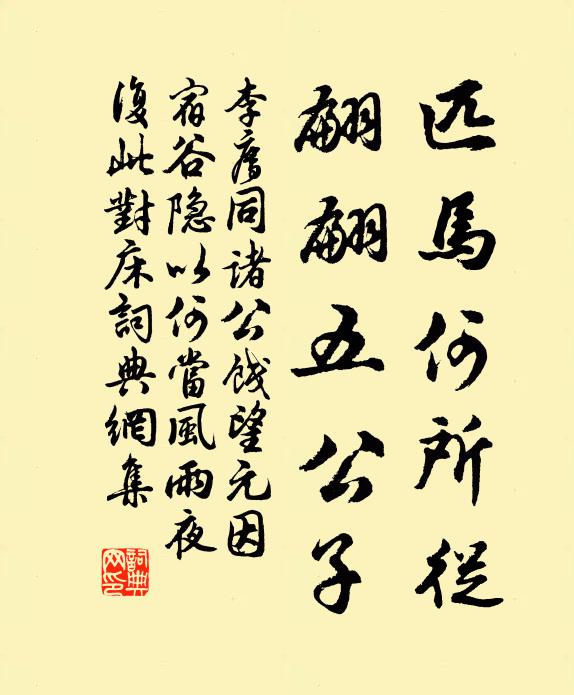 匹馬何所從
翩翩五公子
李廌同諸公餞望元因
宿谷隱以何當風雨夜
復此對床詞典網集
詞典